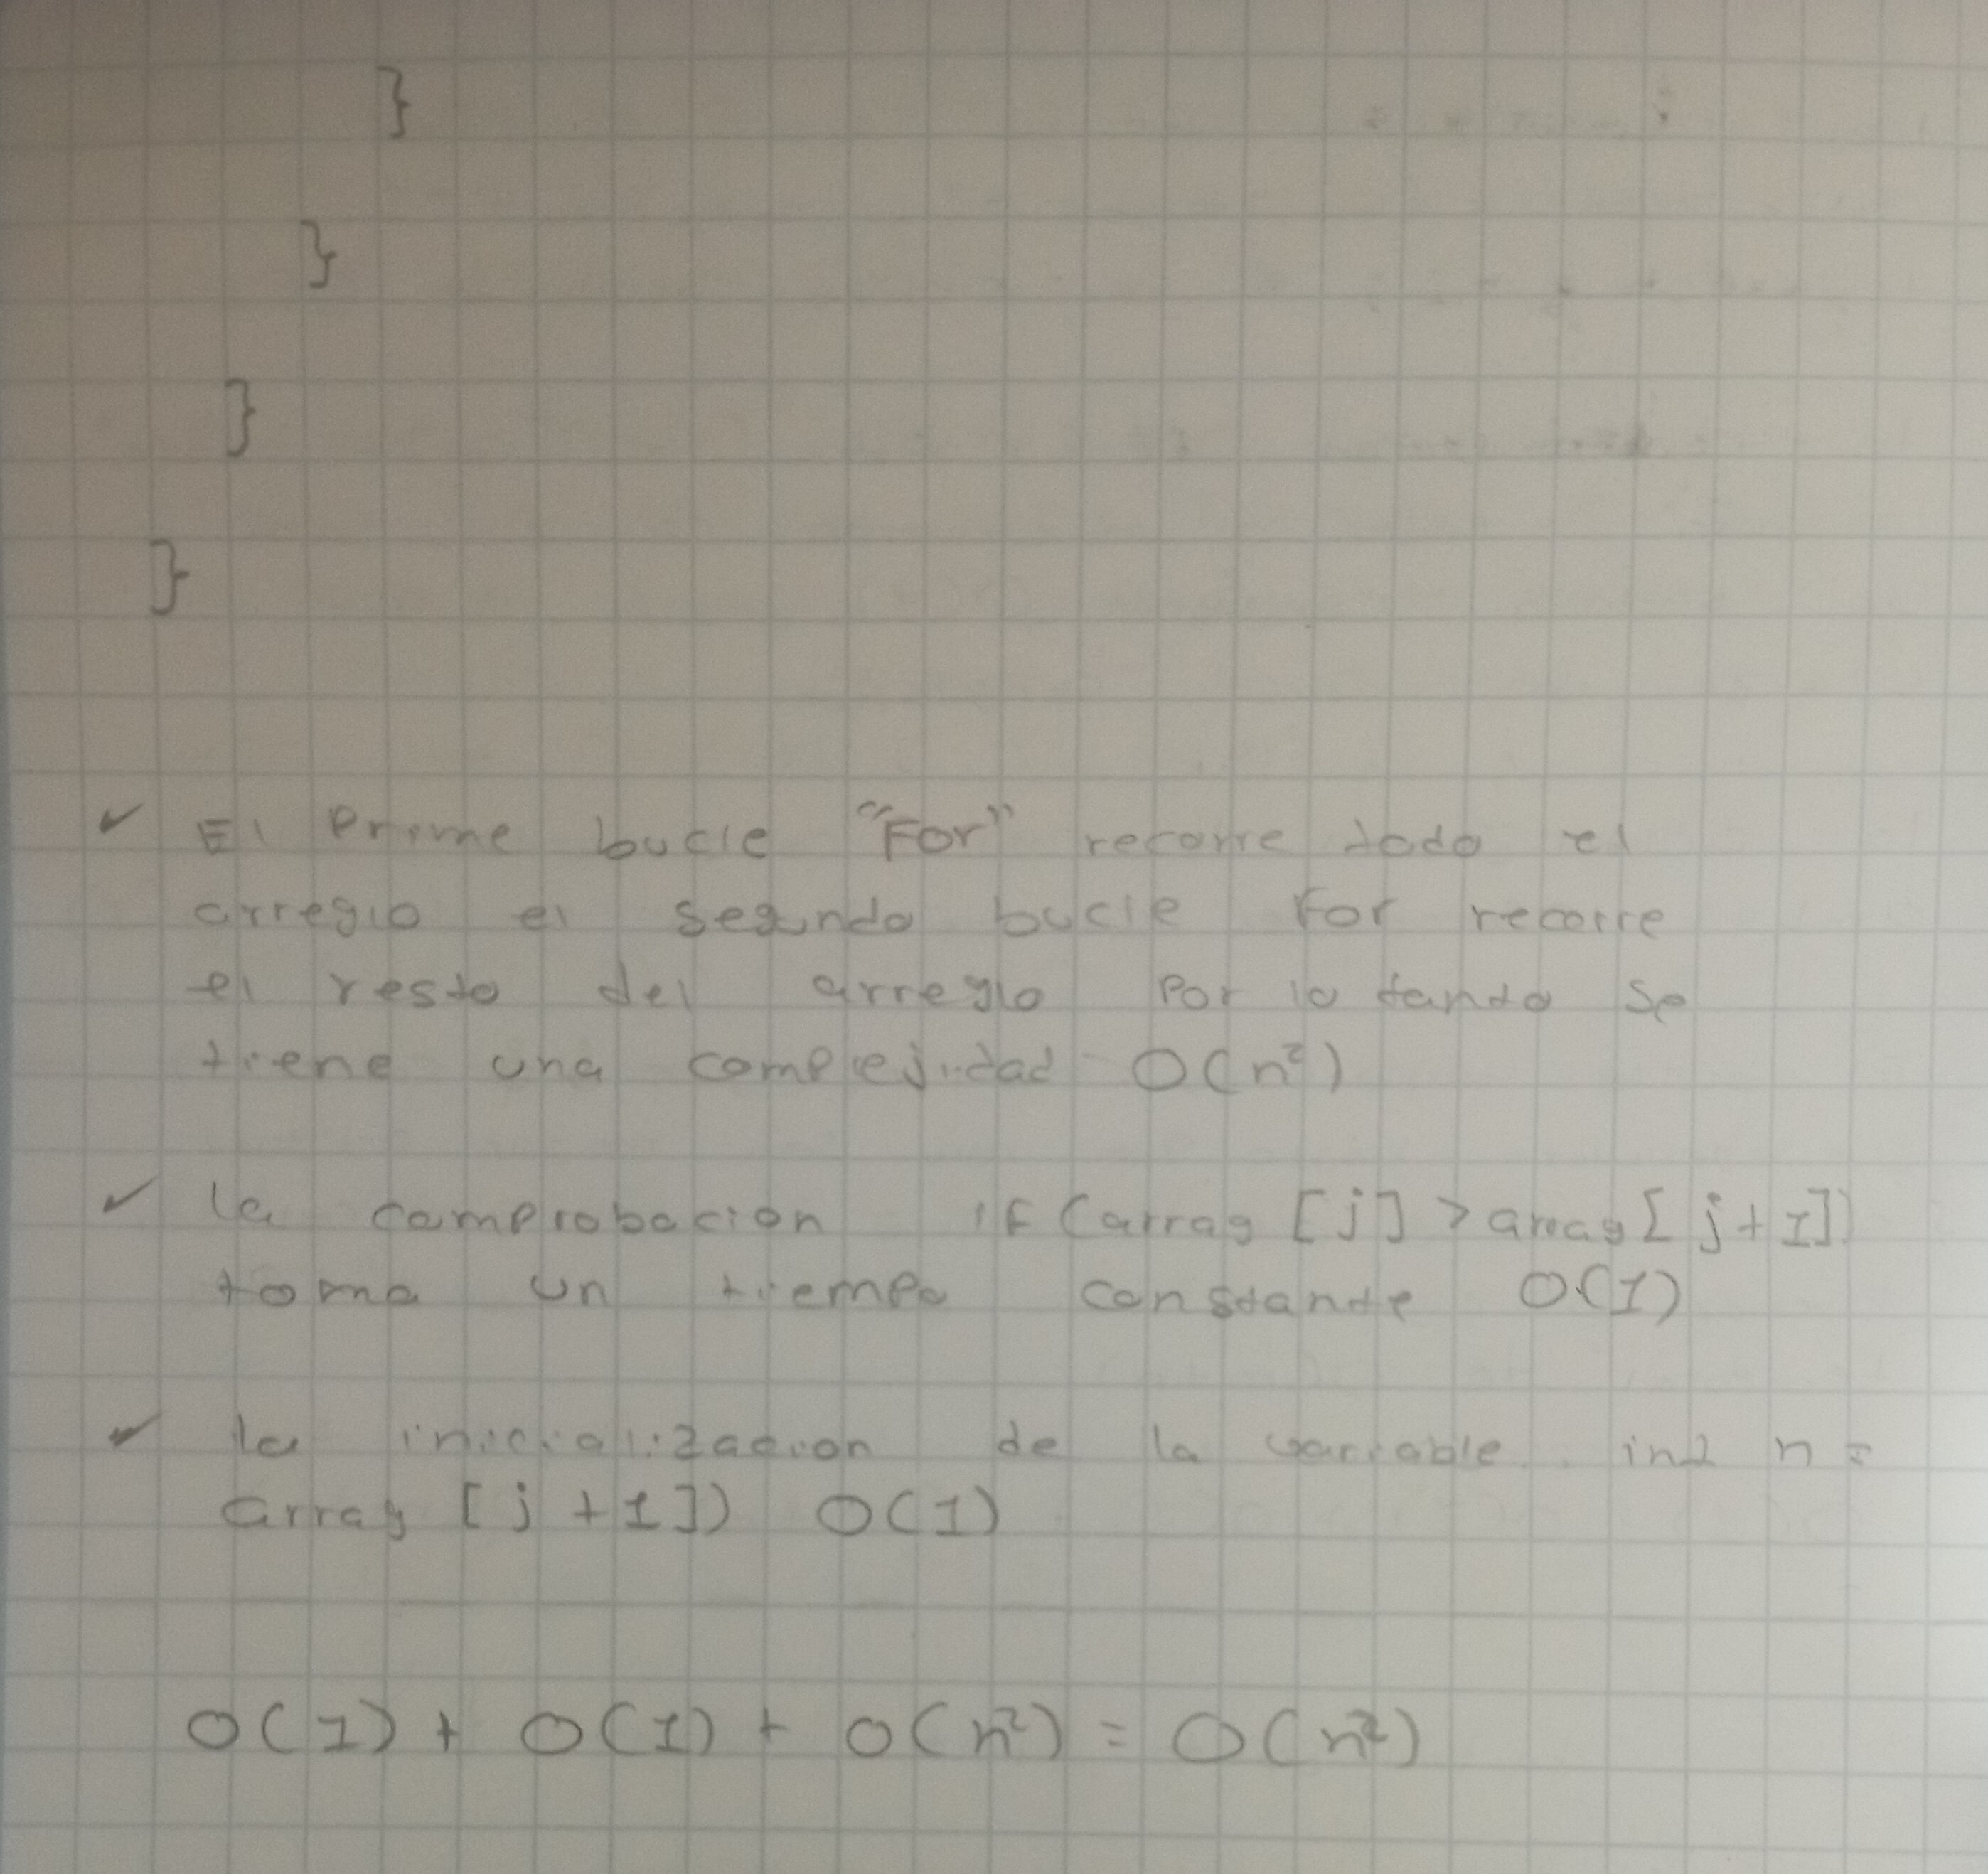 }
}
}
}
El Prime bucle "For" recorre todo el
arreglo el segundo bucle For recorre
el resto del arreglo Por lo tando se
tiene una complejidad O(n²)
la comprobacion if (array [j] > array [j+1])
toma un tiempo constante O(1)
la inicializacion de la variable int n =
array [j +1]) O(1)
O(1) + O(1) + O(n²) = O(n²)